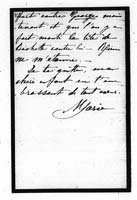 part contre George main
tenant et qu'on y a
fait monter la tête de
contre lui. Rien
ne m'étonne.
Je te quitte, ma
chère enfant en t'em
brassant de tout cœur.
Marie